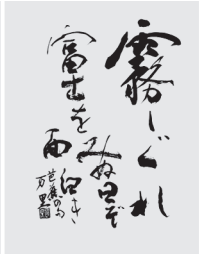 霧しぐれ
富士を
みぬ日ぞ
面白き
芭蕉の句